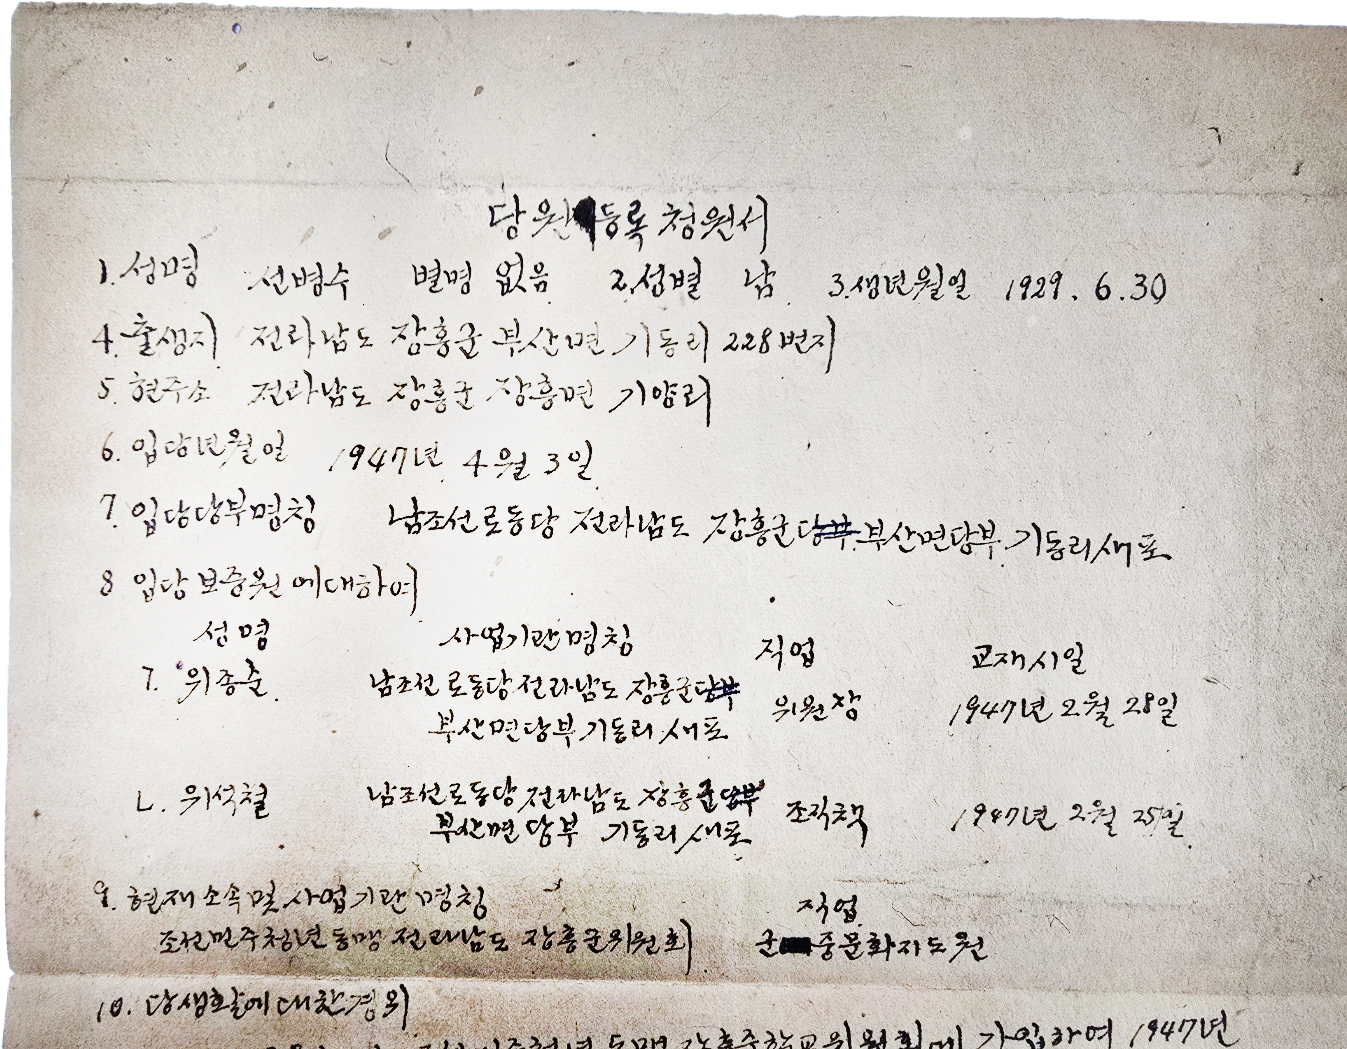 당원 등록 청원서
1. 성명 선병수 별명 없음 2. 성별 남 3. 생년월일 1929. 6. 30
4. 출생지 전라남도 장흥군 부산면 기동리 228번지
5. 현주소 전라남도 장흥군 장흥면 기양리
6. 입당년월일 1947년 4월 3일
7. 입당당부명칭 남조선로동당 전라남도 장흥군당부 부산면당부 기동리세포
8 입당 보증원에대하여
성명 사업기관명칭 직업 교재시일
ㄱ. 위종출 남조선로동당전라남도 장흥군당부 위원장 1947년 2월 28일
부산면당부 기동리 세포
ㄴ. 위석철 남조선로동당전라남도 장흥군당부 조직책 1947년 2월 25일
부산면당부 기동리 세포
9. 현재소속및사업기관명칭 직업
조선민주청년동맹 전라남도 장흥군위원회 군중문화지도원
10. 당생활에대한경위
청년동맹 장흥중학교위원회에 가입하여 1947년